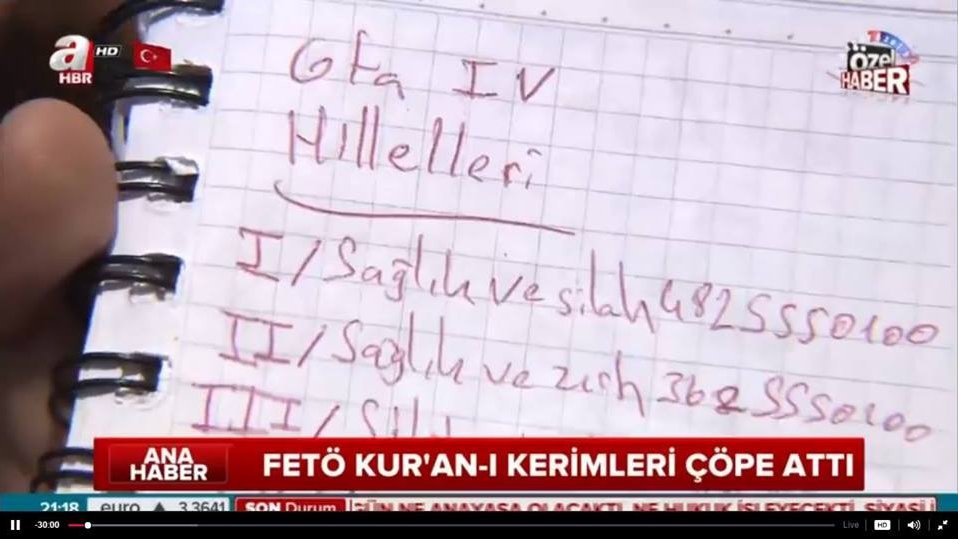 a HD
HBR
özel
HABER
Gta IV
Hıllelleri
I/Sağlık ve silah 482 555 0100
II/Sağlık ve zırh 362 555 0100
III/
ANA
HABER
FETÖ KUR'AN-I KERİMLERİ ÇÖPE ATTI
21:18 euro ▲ 3.3641 SON Durum NE ANAYASA OLACAKTI, NE HUKUK İŞLEYECEKTİ, SİYASİ
-30:00
Live
HD